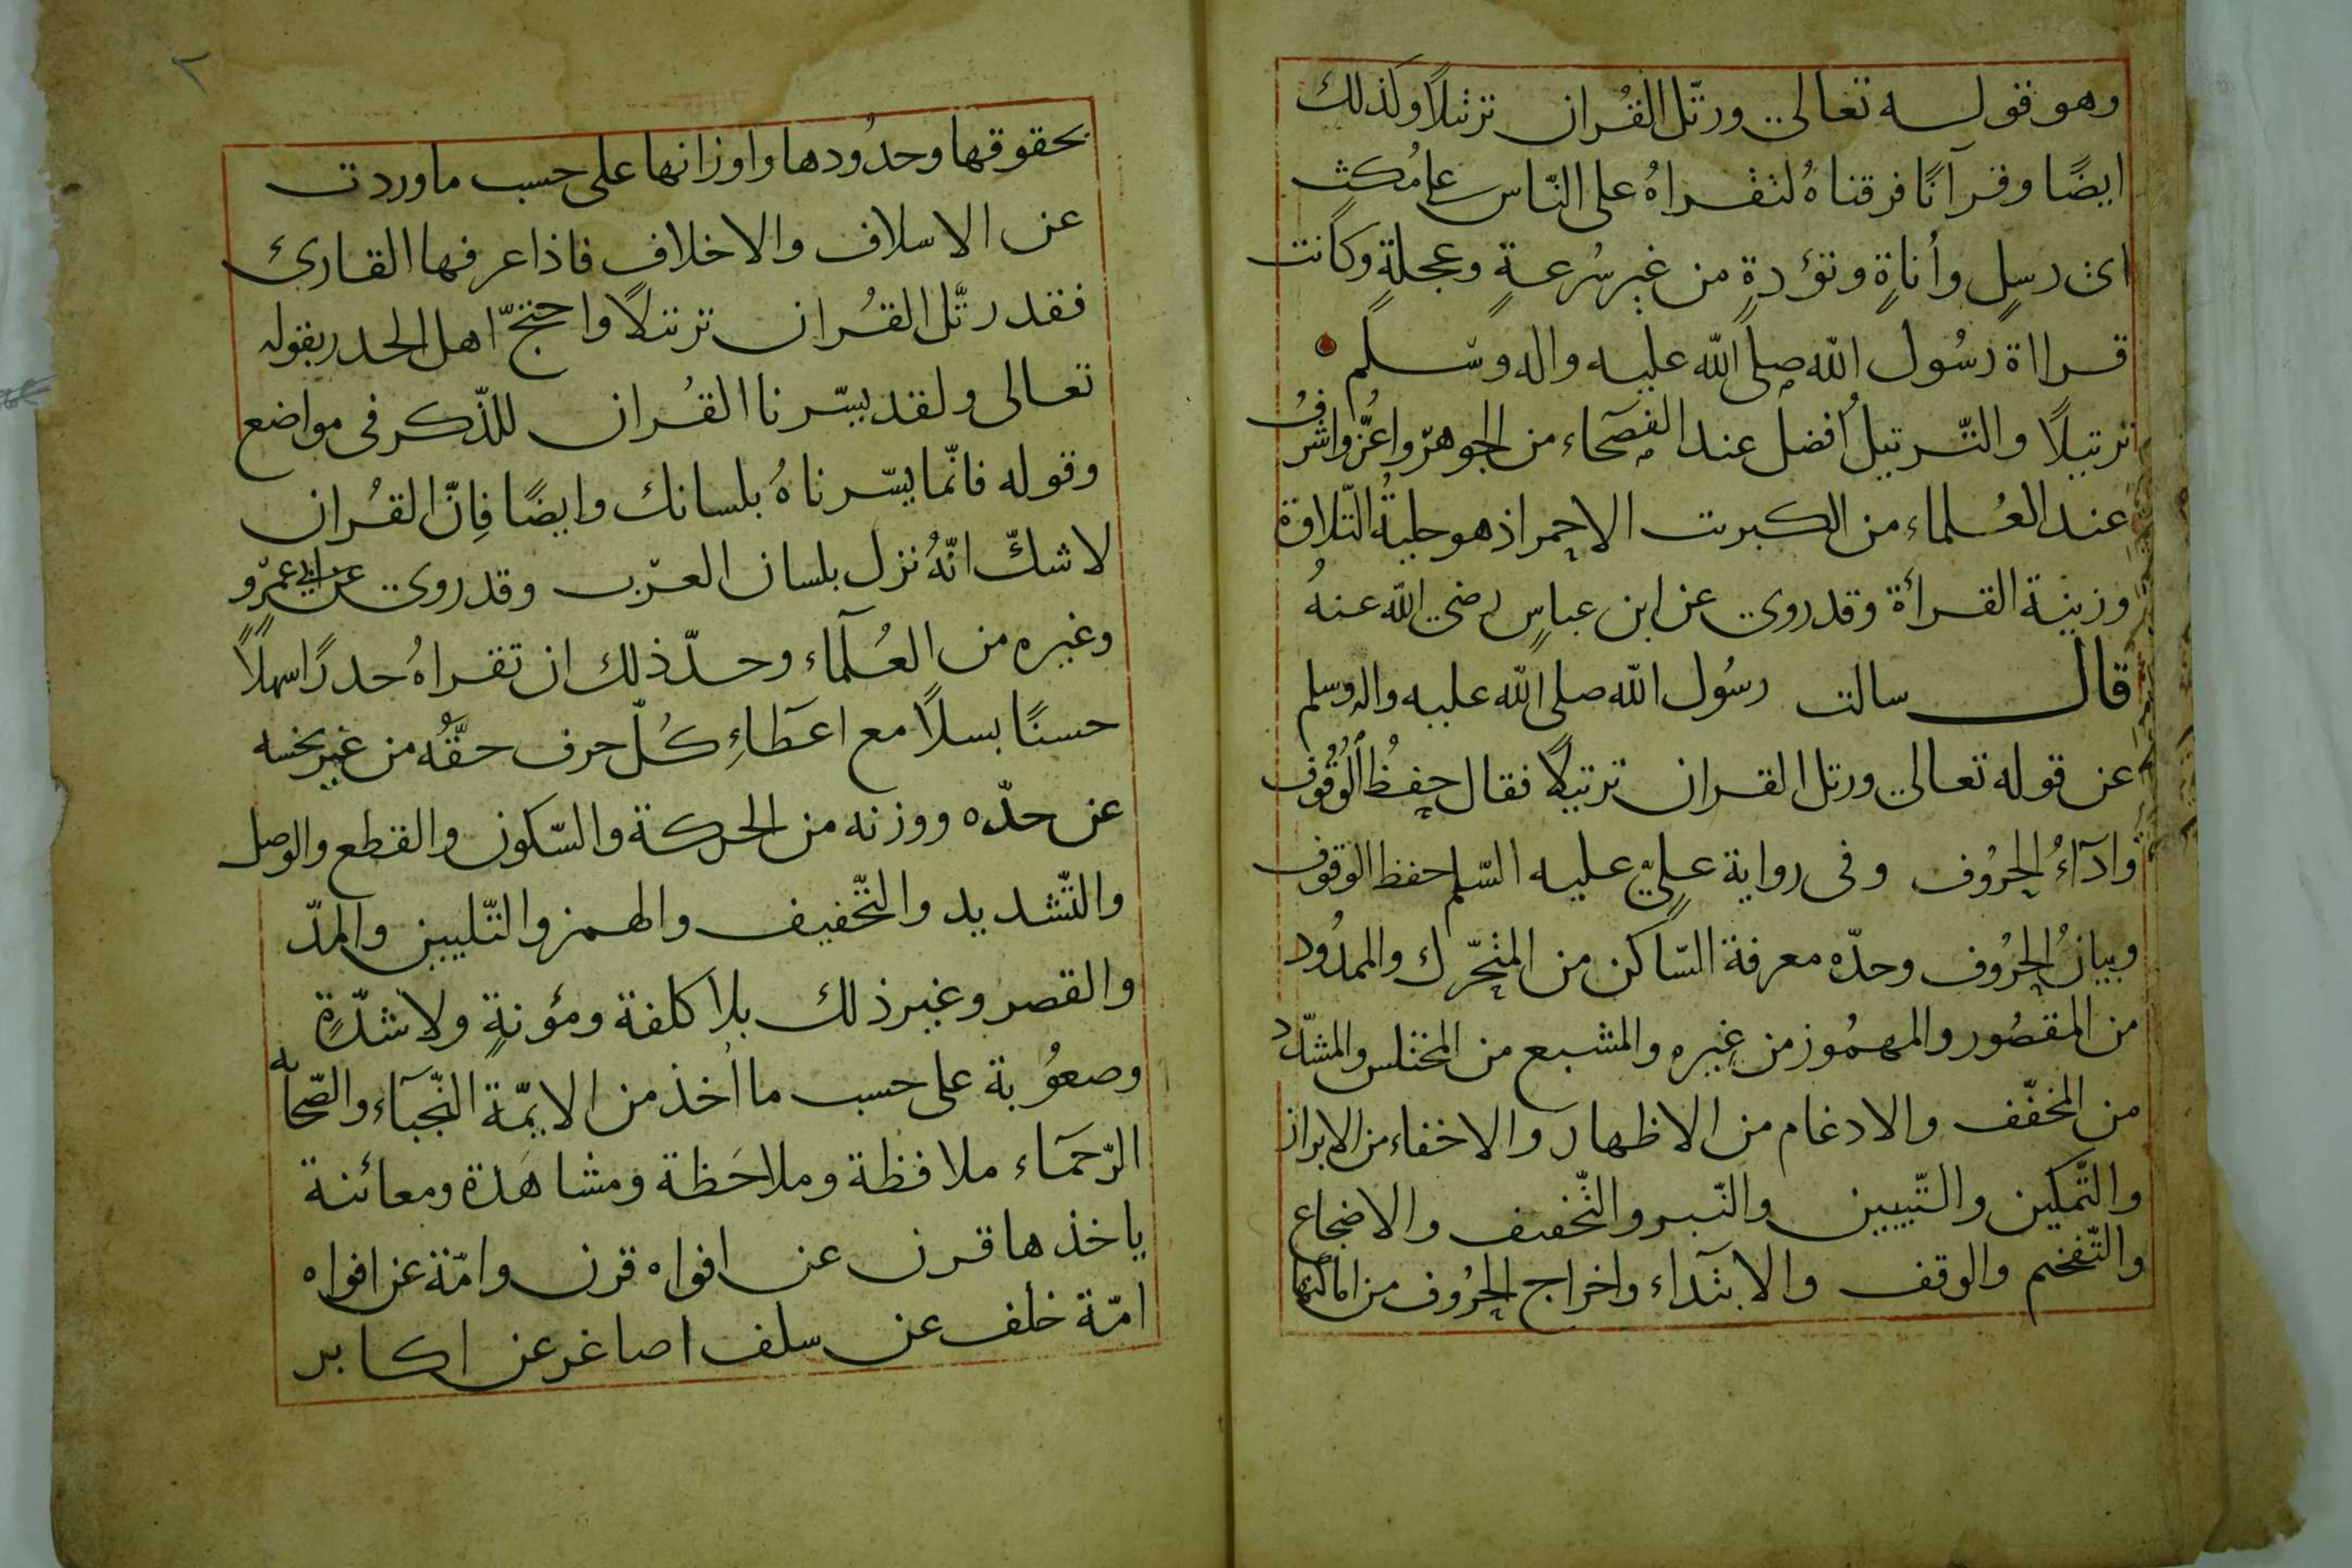 وهو قوله تعالى ورتّل القُران ترتيلًا وكذلك
ايضًا وقرآنًا فرقناهُ لتقراهُ على النّاس على مُكثٍ
اى رسلٍ وأناةٍ وتؤدةٍ من غير سُرعةٍ وعجلةٍ وكانت
قرااة رسُول الله صلى الله عليه واله وسلم
ترتيلًا والتّرتيلُ أفضل عند الفصَحاء من الجوهرّ واعُزّ واشرفُ
عند العُلماء من الكبريت الاحمر اذ هو حليةُ التّلاوة
وزينة القرأة وقد روى عن ابن عباسٍ رضى الله عنهُ
قال سالت رسُول الله صلى الله عليه واله وسلم
عن قوله تعالى ورتل القران ترتيلًا فقال حفظُ الُوقُوفِ
وادَآءُ الحرُوف وفى رواية علىٍّ عليه السّلم حفظ الوقوف
وبيانُ الحرُوف وحدّه معرفة السّاكن من المتحرّك والممدُود
من المقصُور والمهمُوز من غيره والمشبع من المختلس والمشدّد
من المخفّف والادغام من الاظهار والاخفاء من الابراز
والتّمكين والتّبيين والنّبر والتّخفيف والاضجاع
والتّفخيم والوقف والابتدآء واخراج الحرُوف من اماكنها
٢
بحقوقها وحدُودها واوزانها على حسب ما وردت
عن الاسلاف والاخلاف فاذا عرفها القارئ
فقد رتّل القُران ترتيلًا واحتجّ اهل الحدر بقوله
تعالى ولقد يسّرنا القُران للذّكر فى مواضع
وقوله فانّما يسّرناهُ بلسانك وايضًا فإنّ القُران
لا شكّ انّهُ نزل بلسان العرب وقد روى عن ابى عمرٍو
وغيره من العُلمآء وحدّ ذلك ان تقراهُ حدرًا سهلًا
حسنًا بسلًا مع اعطَاءِ كُلّ حرف حقَّهُ من غير بخسه
عن حدّه ووزنه من الحركة والسّكون والقطع والوصل
والتّشديد والتّخفيف والهمز والتّليين والمدّ
والقصر وغير ذلك بلا كلفة ومؤنةٍ ولا شدّةٍ
وصعوُبة على حسب ما اُخذ من الايمّة النّجبَآء والصّحابه
الرّحمَاء ملافظة وملاحَظة ومشاهَدة ومعائنة
ياخذها قرن عن افواه قرن وامّة عن افواه
امّة خلف عن سلف اصاغر عن اكابر